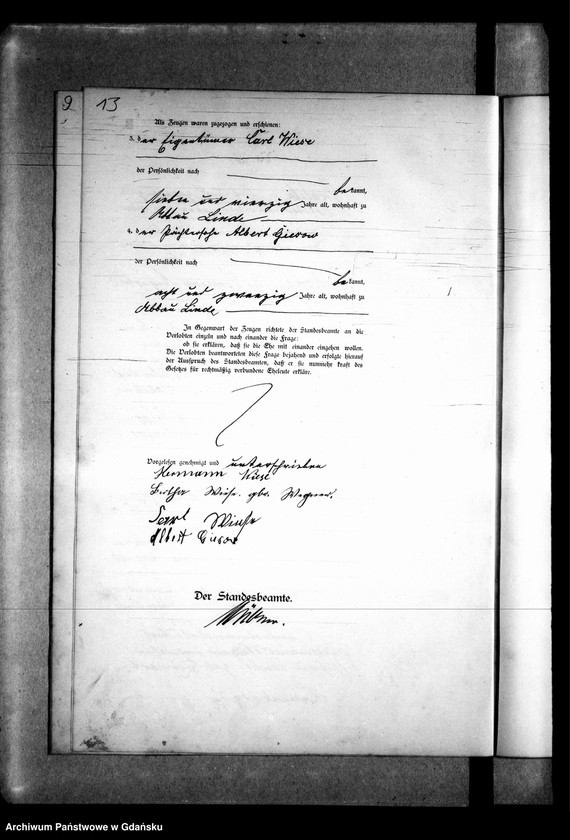 9 13
Als Zeugen waren zugezogen und erschienen:
3. der Eigentümer Carl Wiese
der Persönlichkeit nach
bekannt,
sieben und vierzig Jahre alt, wohnhaft zu
Abbau Linde
4. der Pächtersohn Albert Gierow
der Persönlichkeit nach
bekannt,
acht und zwanzig Jahre alt, wohnhaft zu
Abbau Linde
In Gegenwart der Zeugen richtete der Standesbeamte an die
Verlobten einzeln und nach einander die Frage:
ob sie erklären, daß sie die Ehe mit einander eingehen wollen.
Die Verlobten beantworteten diese Frage bejahend und erfolgte hierauf
der Ausspruch des Standesbeamten, daß er sie nunmehr kraft des
Gesetzes für rechtmäßig verbundene Eheleute erkläre.
Vorgelesen genehmigt und unterschrieben
Hermann Wiese
Bertha Wiese geb. Wegener.
Carl Wiese
Albert Gierow
Der Standesbeamte.
Archiwum Państwowe w Gdańsku